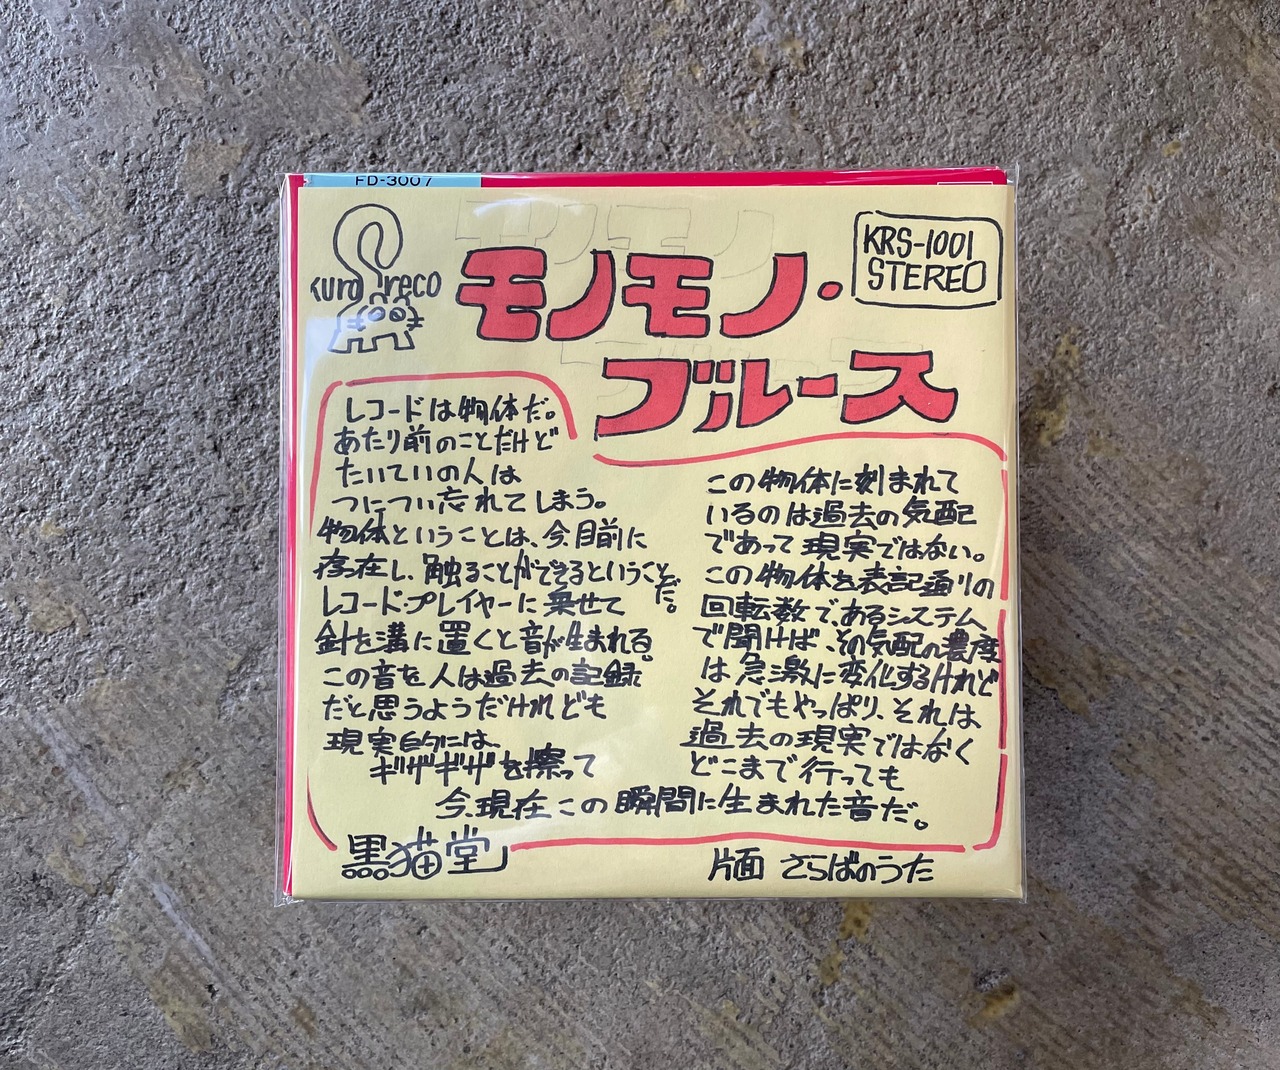 FD-3007
kuro reco
モノモノ・
ブルース
KRS-1001
STEREO
レコードは物体だ。
あたり前のことだけど
たいていの人は
ついつい忘れてしまう。
物体ということは、今目前に
存在し、触ることができるということだ。
レコード・プレイヤーに乗せて
針を溝に置くと音が生まれる。
この音を人は過去の記録
だと思うようだけれども
現実的には、
ギザギザを擦って
今現在この瞬間に生まれた音だ。
この物体に刻まれて
いるのは過去の気配
であって現実ではない。
この物体を表記通りの
回転数で、あるシステム
で聞けば、その気配の濃度
は急激に変化するけれど
それでもやっぱり、それは
過去の現実ではなく
どこまで行っても
黒猫堂
片面 さらばのうた